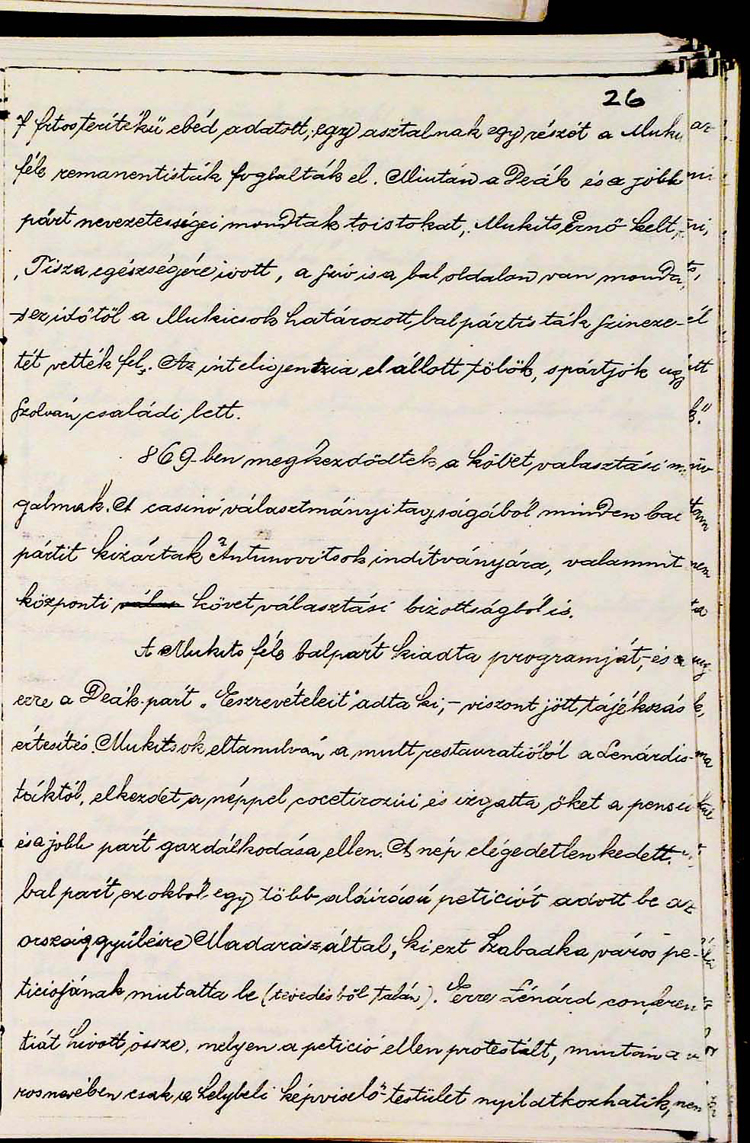 26
7 frtos terítékű ebéd adatott, egy asztalnak egy részét a Muki
féle remanentisták foglalták el. Miután a Deák és a jobb
párt nevezetességei mondtak toistokat, Mukits Ernő kelt
Tisza egészségére ivott, a szív is a bal oldalon van monda,
s ez időtől a Mukicsok határozott balpártisták szineze-
tét vették fel. Az inteligentzia elállott tőlök, s pártjok ugy
szolván családi lett.
869-ben megkezdődtek a követ választási
galmak. A casinó választmányi tagságából minden bal
pártit kizártak Antunovitsok indítványára, valamint
központi követválasztási bizottságból is.
A Mukits féle balpárt kiadta programját, és a
erre a Deák-párt „Eszrevételeit" adta ki, – viszont jött tájékzás
értesítés. Mukitsok eltanulván a mult restauratióból a Lenárdis-
táktól, elkezdet a néppel cocetirozni és izgatta őket a
és a jobb párt gazdálkodása ellen. A nép elégedetlenkedett.
bal párt ez okból egy több aláirású peticiót adott be az
országgyűlésre Madarász által, ki ezt Szabadka város pe-
ticiójának mutatta be (tévedésből talán). Erre Lénárd conferen
tiát hivott össze, melyen a petició ellen protestált, mintán a
ros nevében csak a helybeli képviselő-testület nyilatkozhatik, nem